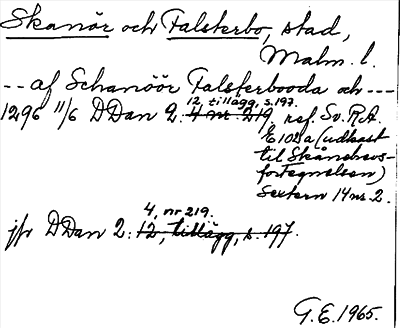 Skanör och Falsterbo, stad,
Malm. l.
-- af Schanöör Falsterbooda och ---
12, tillägg, s. 197.
1296 11/6 DDan 2: 4 nr. 219, ref. Sv. R.A.
E 102a (udkast
til Skånebrevs-
fortegnelsen)
Sextern 14 nr. 2.
4, nr 219.
jfr DDan 2: 12, tillägg, s. 197.
G.E. 1965.